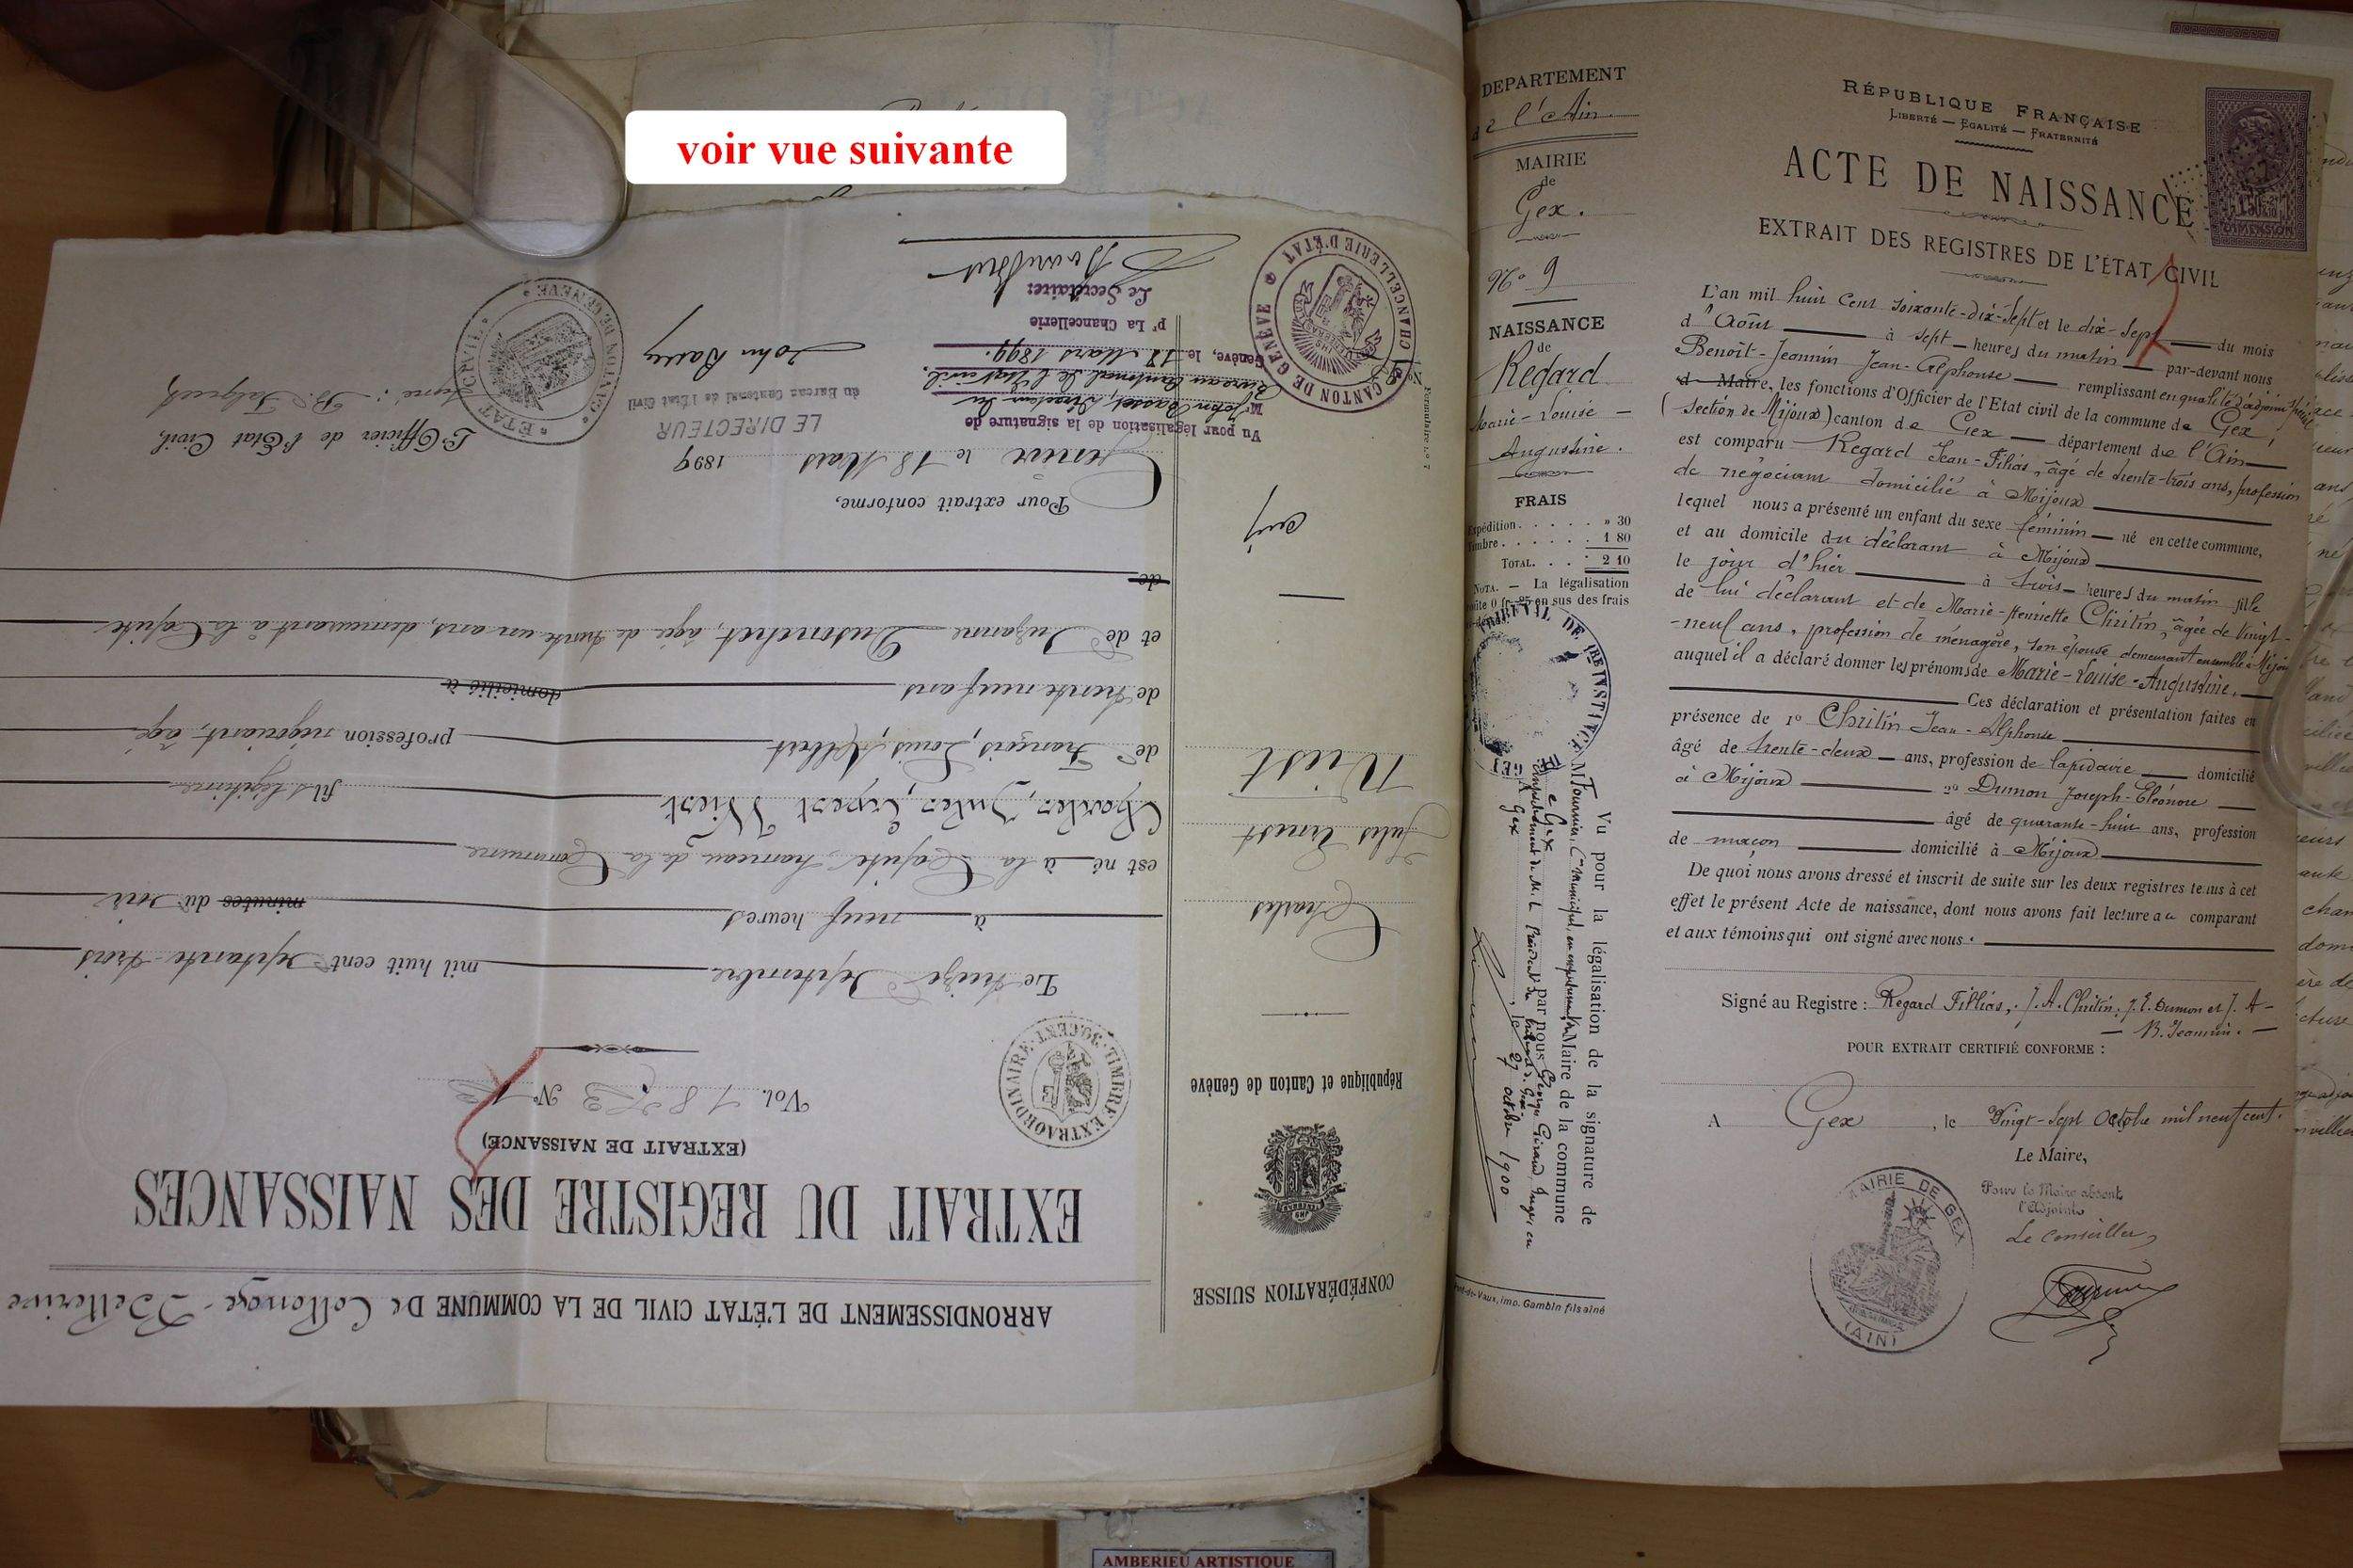 voir vue suivante
ARRONDISSEMENT DE L'ÉTAT CIVIL DE LA COMMUNE De Collonge-Bellerive
EXTRAIT DU REGISTRE DES NAISSANCES
(EXTRAIT DE NAISSANCE)
Vol. 1873 N°
TIMBRE EXTRAORDINAIRE 30 CENT.
Le treize Septembre mil huit cent septante-trois
à neuf heures minutes du soir
est né à la Capite hameau de la Commune
Charles, Jules, Ernest Wiest fils légitime
de François, Louis, Albert profession négociant, âgé
de trente neuf ans domicilié à
et de Suzanne Dusonchet, âgée de trente un ans, demeurant à la Capite
de
Pour extrait conforme,
Genève le 18 Mars 1899
LE DIRECTEUR
du Bureau Cantonal de l'État Civil
L'Officier de l'État Civil,
signé :
ÉTAT CIVIL
CANTON DE GENÈVE
CONFÉDÉRATION SUISSE
République et Canton de Genève
Charles
Jules Ernest
Wiest
Formulaire n° 7
Vu pour légalisation de la signature de
Mr John Basset, Directeur du
Bureau Cantonal de l'État civil.
Genève, le 18 Mars 1899.
pr La Chancellerie
Le Secrétaire:
CANTON DE GENÈVE
CHANCELLERIE D'ÉTAT
DEPARTEMENT
de l'Ain
MAIRIE
de
Gex.
N° 9
NAISSANCE
de
Regard
Marie-Louise
Augustine.
FRAIS
Expédition. . . . . . » 30
Timbre. . . . . . . 1 80
TOTAL. . . 2 10
NOTA. — La légalisation
coûte 0 fr. 25 en sus des frais
Vu pour la légalisation de la signature de
M Fournier, Cer Municipal, Maire de la commune
de Gex par nous George Girand, Juge, en
empêchement de M. L. Président du tribunal de Gex
A Gex, le 27 octobre 1900
Pont-de-Vaux, imp. Gambin fils aîné
RÉPUBLIQUE FRANÇAISE
LIBERTÉ — EGALITÉ — FRATERNITÉ
ACTE DE NAISSANCE
EXTRAIT DES REGISTRES DE L'ÉTAT CIVIL
DIMENSION
L'an mil huit cent soixante-dix-sept et le dix-sept du mois
d'Août à sept heures du matin par-devant nous
Benoît-Jeannin Jean-Alphonse remplissant en qualité d'adjoint spécial
d Maire, les fonctions d'Officier de l'Etat civil de la commune de Gex,
(section de Mijoux) canton de Gex département de l'Ain
est comparu Regard Jean-Filias, âgé de trente-trois ans, profession
de négociant domicilié à Mijoux
lequel nous a présenté un enfant du sexe féminin né en cette commune,
et au domicile du déclarant à Mijoux
le jour d'hier à trois heures du matin fille
de lui déclarant et de Marie-Henriette Chritin, âgée de vingt-
-neuf ans, profession de ménagère, son épouse demeurant ensemble à Mijoux
auquel il a déclaré donner les prénoms de Marie-Louise-Augustine.
Ces déclaration et présentation faites en
présence de 1° Chritin Jean-Alphonse
âgé de trente-deux ans, profession de lapidaire domicilié
à Mijoux 2° Dumon Joseph-Eléonore
âgé de quarante-huit ans, profession
de maçon domicilié à Mijoux
De quoi nous avons dressé et inscrit de suite sur les deux registres tenus à cet
effet le présent Acte de naissance, dont nous avons fait lecture au comparant
et aux témoins qui ont signé avec nous.
Signé au Registre : Regard Fillias, J. A. Chritin, J. E. Dumon et J. A-
B. Jeannin.
POUR EXTRAIT CERTIFIÉ CONFORME :
A Gex, le Vingt-sept Octobre mil neuf cent.
Le Maire,
Pour le Maire absent
l'Adjoint
Le Conseiller
MAIRIE DE GEX
(AIN)
AMBERIEU ARTISTIQUE